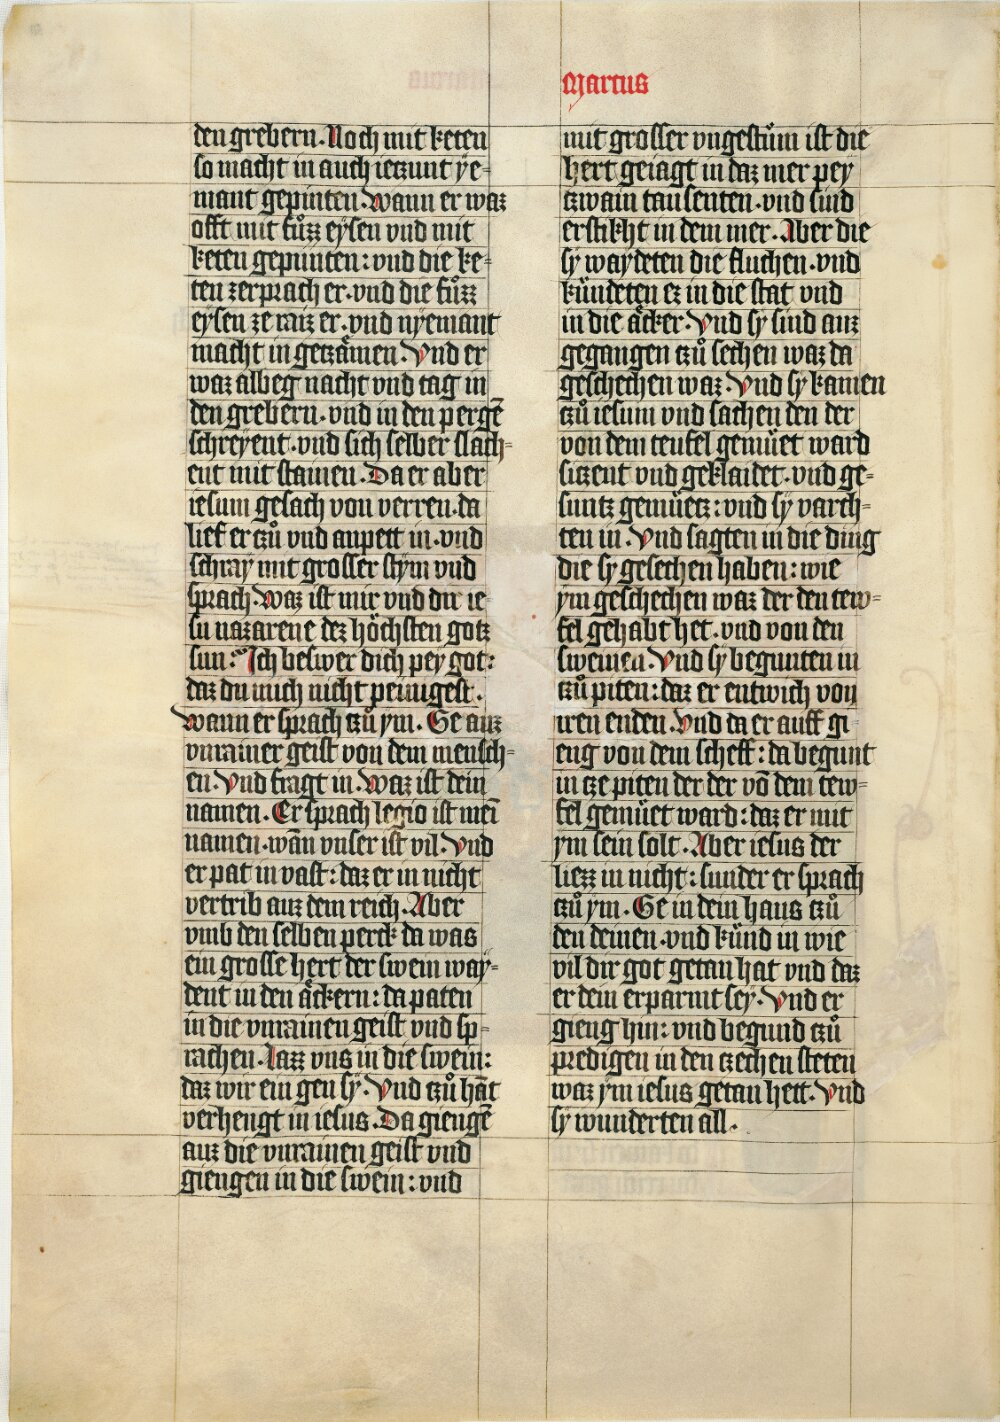 Marcus
den grebern. Noch mit keten
so macht in auch ieczunt ÿe-
mant gepinten. Wann er waz
offt mit fuͦzz eÿsen vnd mit
keten gepunten: vnd die ke-
ten zerprach er. vnd die fuͦzz
eÿsen ze raiz er. vnd nyemant
macht in geczämen. Vnd er
waz albeg nacht vnd tag in
den grebern. vnd in den pergē
schreÿent. vnd sich selber slach-
ent mit stainen. Da er aber
iesum gesach von verren. da
lief er czuͦ vnd anpett in. vnd
schraÿ mit grosser stÿm vnd
sprach. Waz ist mir vnd dir ie-
su nazarene dez höchsten gotz
sun: Ich beswer dich peÿ got:
daz du mich nicht peinigest.
Wann er sprach czuͦ ÿm. Ge auz
vnrainer geist von dem mensch-
en. Vnd fragt in. Waz ist dein
namen. Er sprach legio ist meī
namen. wān vnser ist vil. Vnd
er pat in vast: daz er in nicht
vertrib auz dem reich. Aber
vmb den selben perck da was
ein grosse hert der swein waÿ-
dent in den äckern: da paten
in die vnrainen geist vnd sp-
rachen. Lazz vns in die swein:
daz wir ein gen sÿ. Vnd czuͦ hāt
verhengt in iesus. Da giengē
auz die vnrainen geist vnd
giengen in die swein: vnd
mit grosser vngestüm ist die
hert geiagt in daz mer peÿ
czwain tausenten. vnd sind
erstikht in dem mer. Aber die
sÿ waÿdeten die fluchen. vnd
kündeten ez in die stat vnd
in die äcker. Vnd sÿ sind auz
gegangen czuͦ sechen waz da
geschechen waz. Vnd sÿ kamen
czuͦ iesum vnd sachen den der
von dem teufel gemüet ward
siczent vnd geklaidet. vnd ge-
suntz gemüetz: vnd sÿ varch-
ten in. Vnd sagten in die ding
die sÿ gesechen haben: wie
ÿm geschechen waz der den tew-
fel gehabt het. vnd von den
sweinen. Vnd sÿ begunten in
czuͦ piten: daz er entwich von
iren enden. Vnd da er auff gi
eng von dem scheff: da begunt
in cze piten der der vō dem tew-
fel gemüet ward: daz er mit
ÿm sein solt. Aber iesus der
liezz in nicht: sunder er sprach
czuͦ ÿm. Ge in dein haus czuͦ
den deinen. vnd künd in wie
vil dir got getan hat vnd daz
er dein erparmt seÿ. Vnd er
gieng hin: vnd begund czuͦ
predigen in den czechen steten
waz ÿm iesus getan hett. Vnd
sÿ wunderten all.